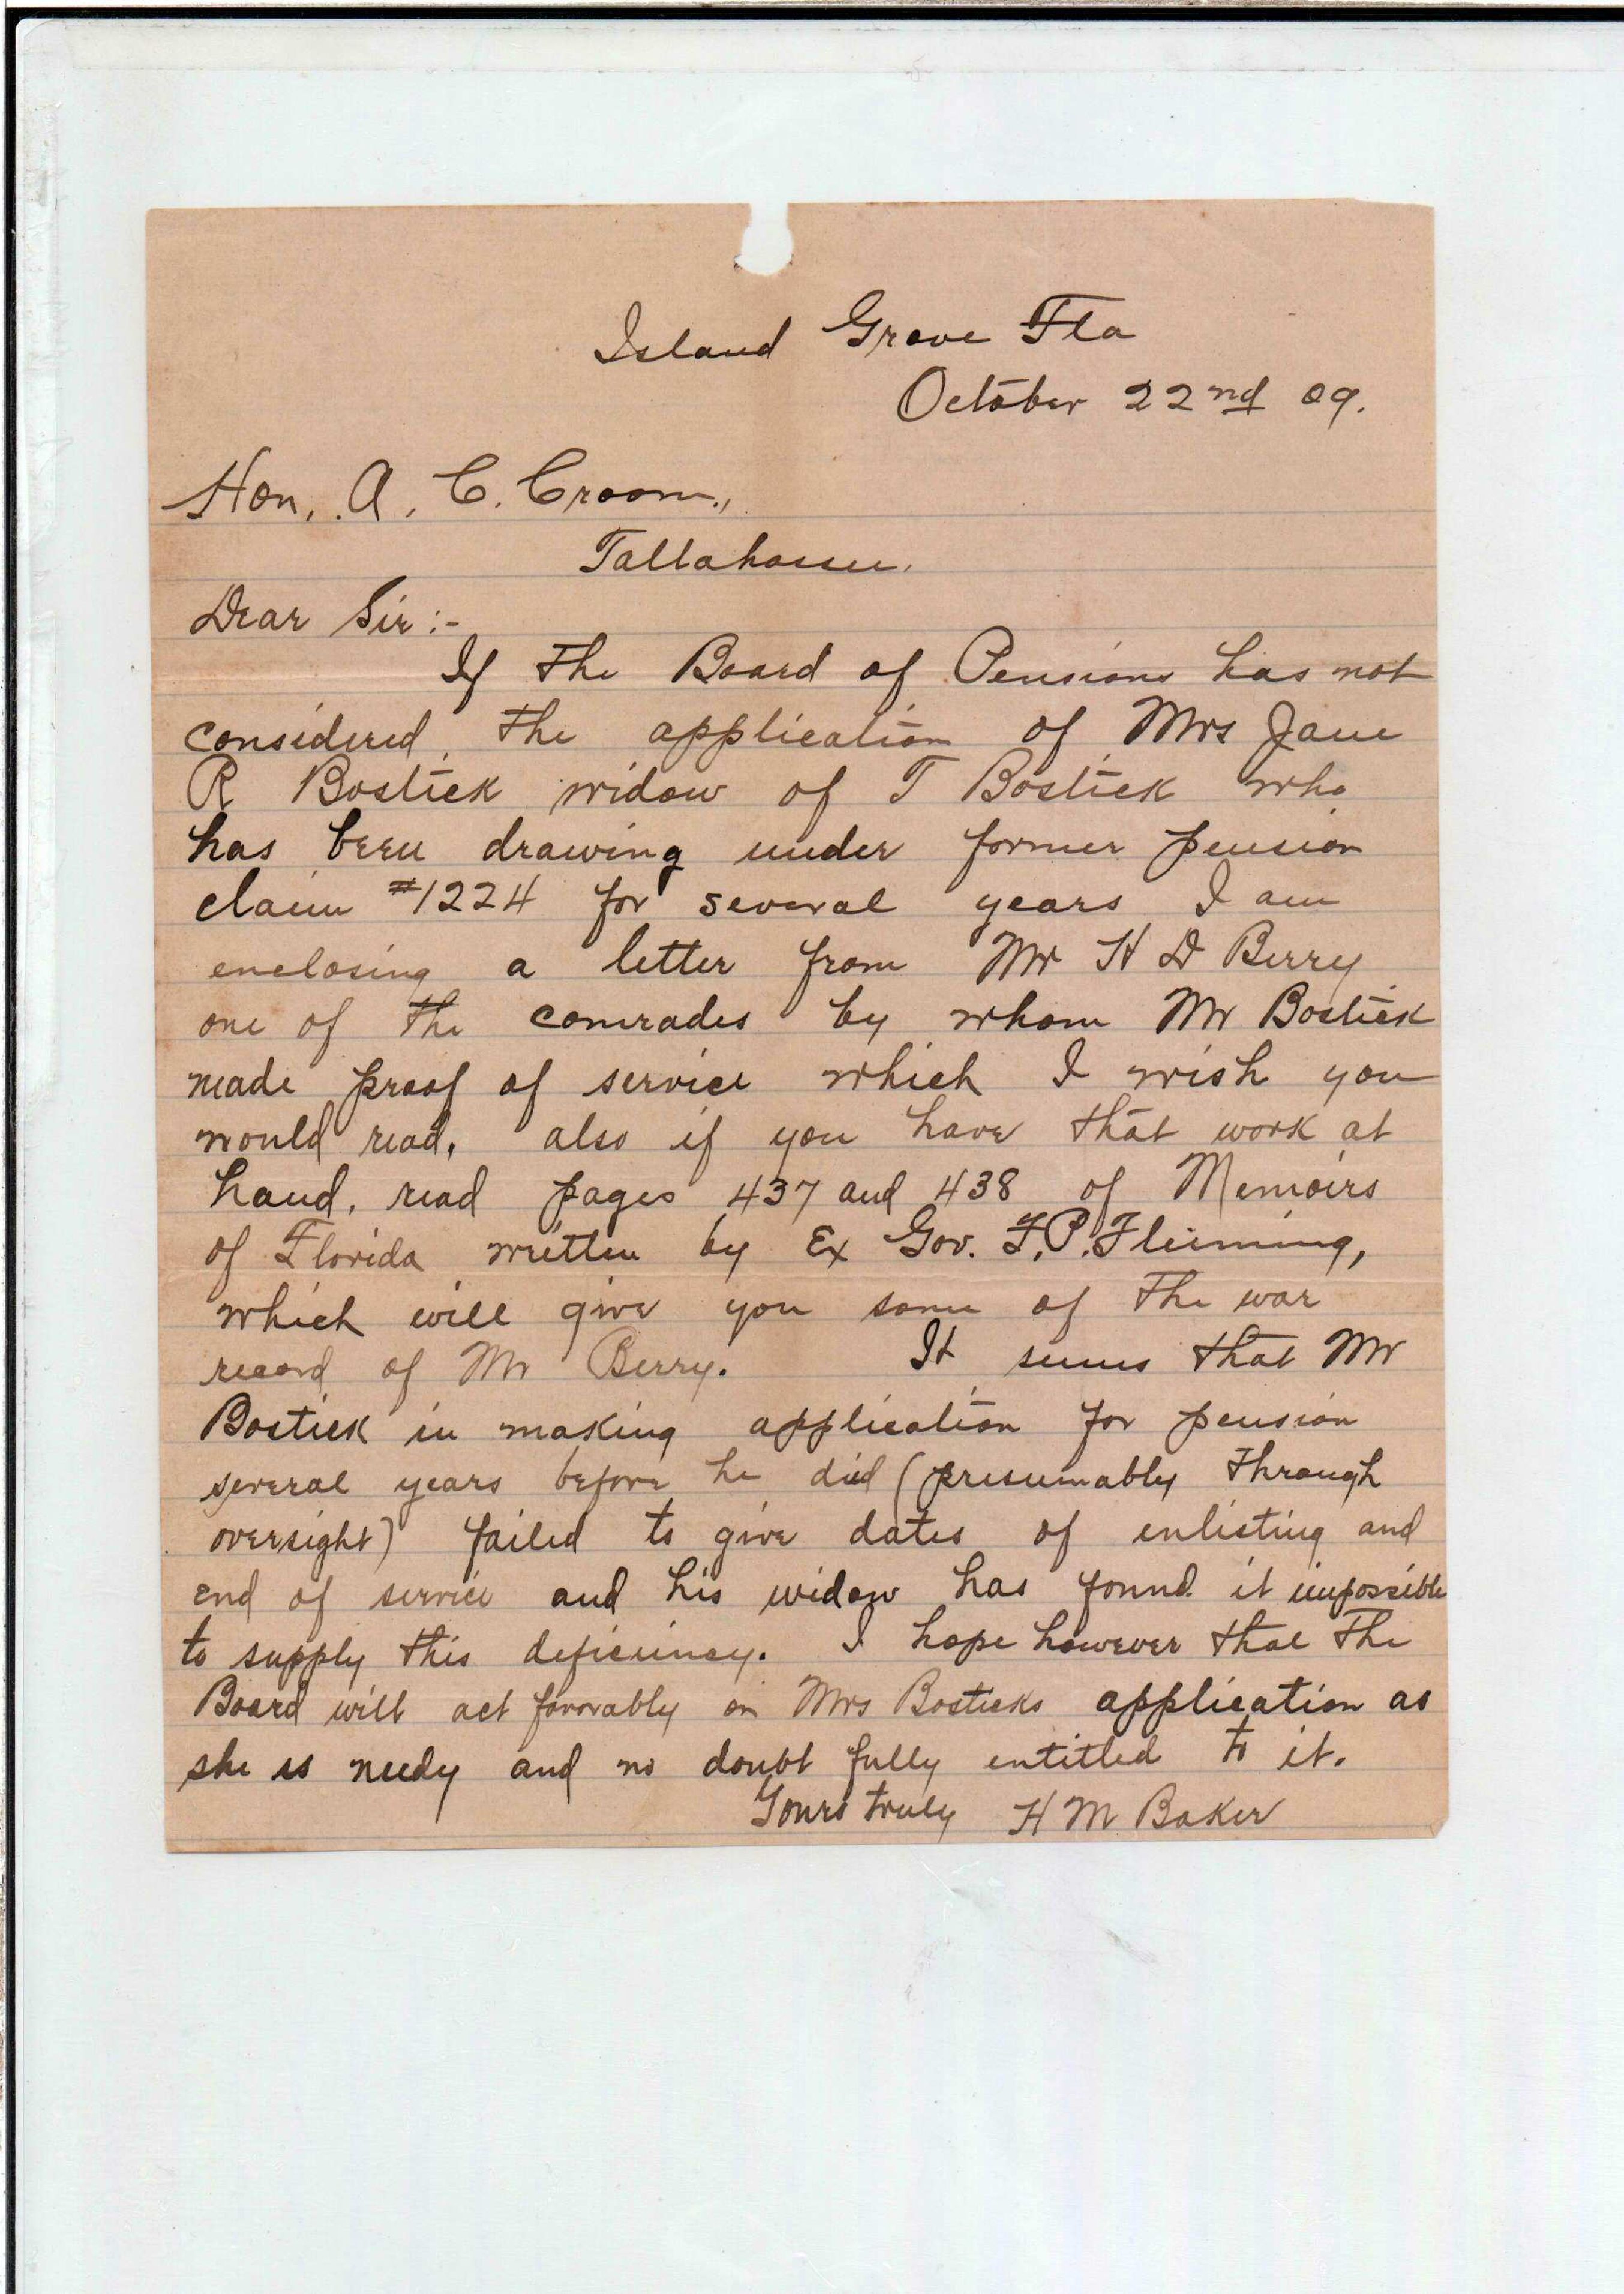 Island Grove Fla
October 22nd 09.
Hon. A. C. Croom.,
Tallahassee.
Dear Sir :-
If the Board of Pensions has not
considered the application of Mrs Jane
R Bostick widow of T Bostick who
has been drawing under former pension
claim #1224 for several years I am
enclosing a letter from Mr H D Berry
one of the comrades by whom Mr Bostick
made proof of service which I wish you
would read, also if you have that work at
hand, read pages 437 and 438 of Memoirs
of Florida written by Ex Gov. F. P. Fleming,
which will give you some of the war
record of Mr Berry. It seems that Mr
Bostick in making application for pension
several years before he died (presumably through
oversight) failed to give dates of enlisting and
end of service and his widow has found it impossible
to supply this deficiency. I hope however that the
Board will act favorably on Mrs Bosticks application as
she is needy and no doubt fully entitled to it.
Yours truly H M Baker